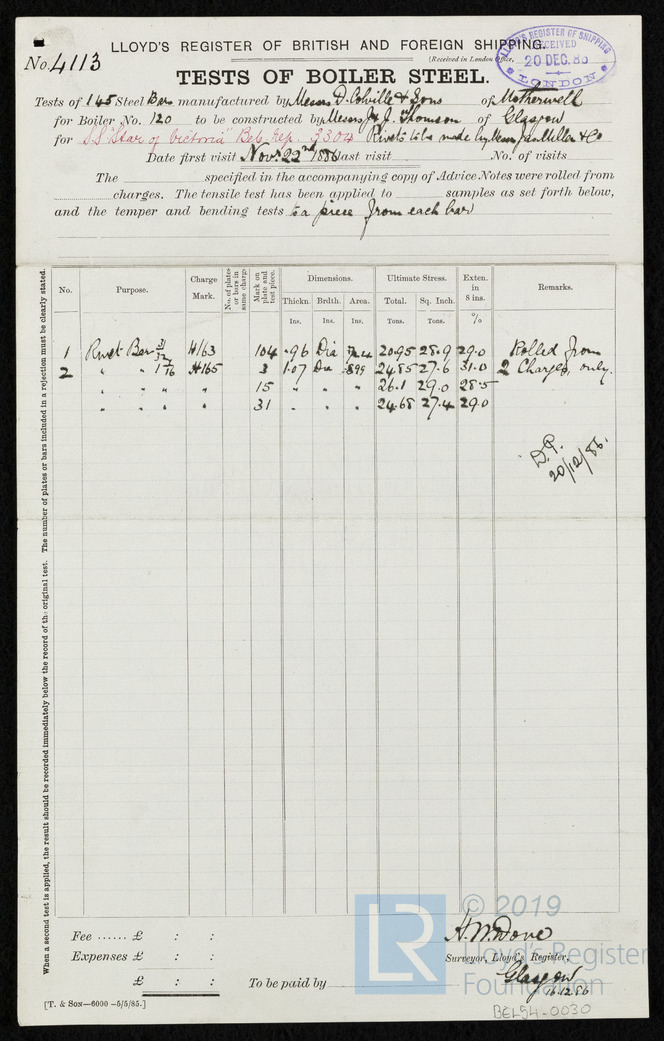 LLOYD'S REGISTER OF BRITISH AND FOREIGN SHIPPING.
No. 4113
(Received in London Office,
LLOYD'S REGISTER OF SHIPPING
RECEIVED
20 DEC. 86
LONDON
TESTS OF BOILER STEEL.
Tests of 145 Steel Bars manufactured by Messrs D. Colville & Sons of Motherwell
for Boiler No. 120 to be constructed by Messrs J & J. Thomson of Glasgow
for S.S "Star of Victoria" Bel. rep. 3304 Rivets to be made by Messrs Jas. Miller & Co
Date first visit Novr. 22nd 1886 last visit No. of visits
The specified in the accompanying copy of Advice Notes were rolled from
charges. The tensile test has been applied to samples as set forth below,
and the temper and bending tests to a piece from each bar
No. Purpose. Charge Mark. No. of plates or bars in same charge Mark on plate and test piece. Dimensions. Ultimate Stress. Exten. in 8 ins. Remarks.
Thickn. Brdth. Area. Total. Sq. Inch.
Ins. Ins. Ins. Tons. Tons. %
1 Rivet Bar 31/32 H163 104 .96 Dia .724 20.95 28.9 29.0 Rolled from
2 " " 1 1/16 H165 3 1.07 Dia .899 24.85 27.6 31.0 2 Charges, only.
" " " " 15 " " " 26.1 29.0 28.5
" " " " 31 " " " 24.68 27.4 29.0
D.P.
20/12/86.
When a second test is applied, the result should be recorded immediately below the record of the original test. The number of plates or bars included in a rejection must be clearly stated.
Fee ...... £ : :
Expenses £ : :
£ : :
To be paid by
Surveyor, Lloyd's Register,
Glasgow
16.12.86
[T. & SON—6000—5/5/85.]
BEL54-0030
LR
© 2019
Lloyd's Register
Foundation